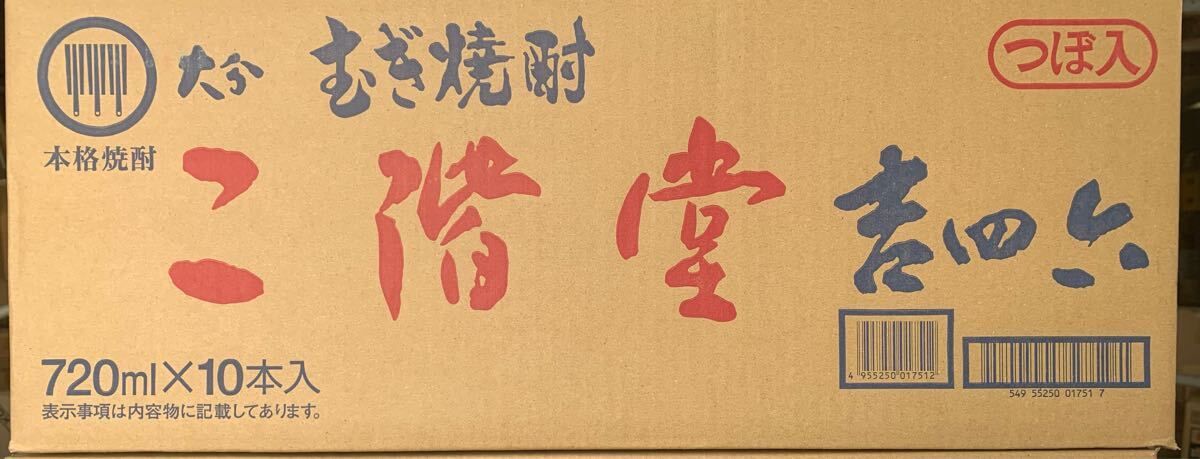 大分 むぎ焼酎
つぼ入
本格焼酎
二階堂 吉四六
720ml×10本入
表示事項は内容物に記載してあります。
4 955250 017512
549 55250 01751 7